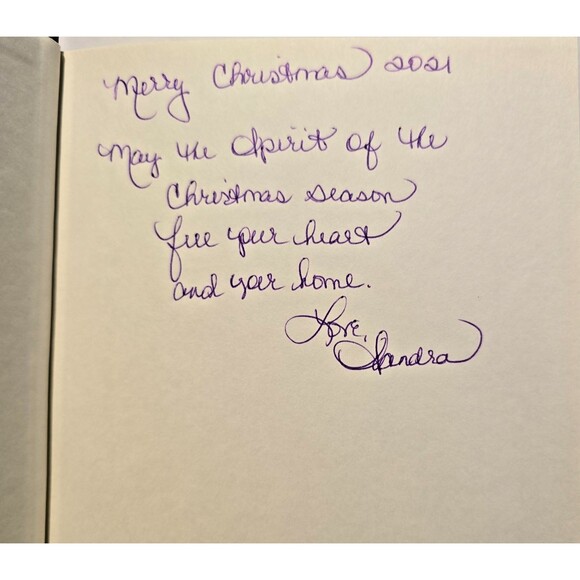 Merry Christmas 2021
May the Spirit of the
Christmas season
fill your heart
and your home.
Love,
Sandra